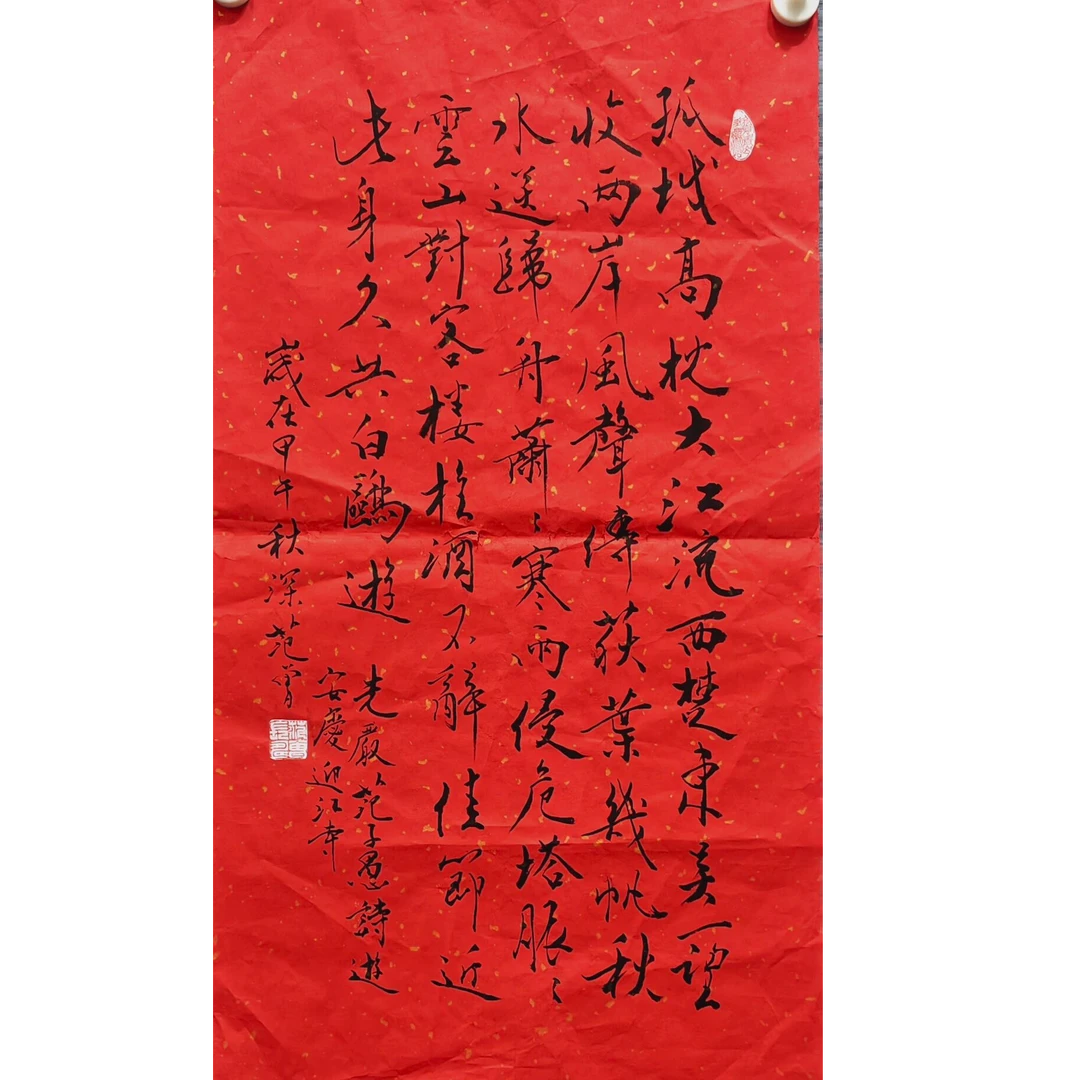 孤城高枕大江流西楚東吴一望
收兩岸風聲傳荻葉幾帆秋
水送歸舟蕭〻寒雨侵危塔脈〻
雲山對客樓於酒不辭佳節近
此身久共白鷗遊 先嚴范子愚詩遊
安慶迎江寺
歲在甲午秋深范曾